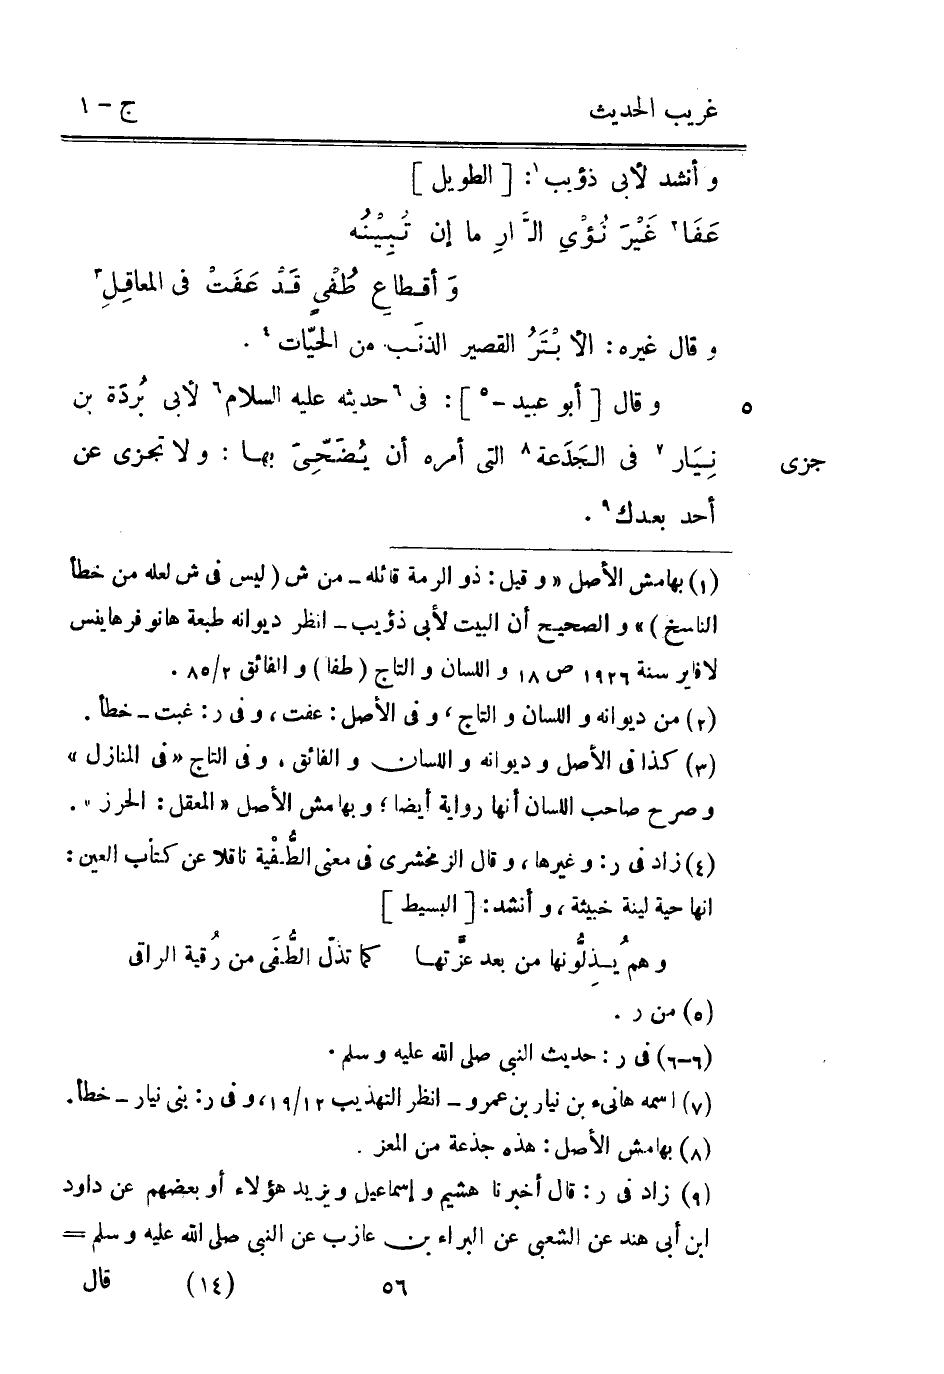 غريب الحديث ج – ١
و أنشد لأبى ذؤيب١: [ الطويل ]
عَفَا٢ غَيْرَ نُؤْيِ الدَّارِ ما إن تُبِيْنُه
وَ أقطاعِ طُفْيٍ قَدْ عَفَتْ فى المعاقِلِ٣
و قال غيره: الأبْتَرُ القصير الذنَب من الحيّات٤ .
٥ و قال [ أبو عبيد –٥ ]: فى ٦حديثه عليه السلام٦ لأبى بُردَة بن
جزى نِيَار٧ فى الجَذَعة٨ التى أمره أن يُضَحِّىَ بها : و لا تجزى عن
أحد بعدك٩ .
(١) بهامش الأصل « و قيل: ذو الرمة قائله – من ش ( ليس فى ش لعله من خطأ
الناسخ ) » و الصحيح أن البيت لأبى ذؤيب – انظر ديوانه طبعة هانوفرهاينس
لافاير سنة ١٩٢٦ ص ١٨ و اللسان و التاج ( طفا ) و الفائق ٨٥/٢ .
(٢) من ديوانه و اللسان و التاج ، و فى الأصل : عفت ، و فى ر: غبت – خطأ .
(٣) كذا فى الأصل و ديوانه و اللسان و الفائق ، و فى التاج « فى المنازل »
و صرح صاحب اللسان أنها رواية أيضا ؛ و بهامش الأصل « المعقل : الحرز » .
(٤) زاد فى ر: و غيرها ، و قال الزمخشرى فى معنى الطُّفْية ناقلا عن كتاب العين :
انها حية لينة خبيثة ، و أنشد: [ البسيط ]
و هم يُذِلُّونها من بعد عزَّتها كما تذلّ الطُّفَى من رُقية الراقى
(٥) من ر .
(٦–٦) فى ر : حديث النبى صلى الله عليه و سلم .
(٧) اسمه هانىء بن نيار بن عمرو – انظر التهذيب ١٩/١٢، و فى ر: بنى نيار – خطأ .
(٨) بهامش الأصل : هذه جذعة من المعز .
(٩) زاد فى ر: قال أخبرنا هشيم و إسماعيل و يزيد هؤلاء أو بعضهم عن داود
ابن أبى هند عن الشعبى عن البراء بن عازب عن النبى صلى الله عليه و سلم =
٥٦ (١٤) قال